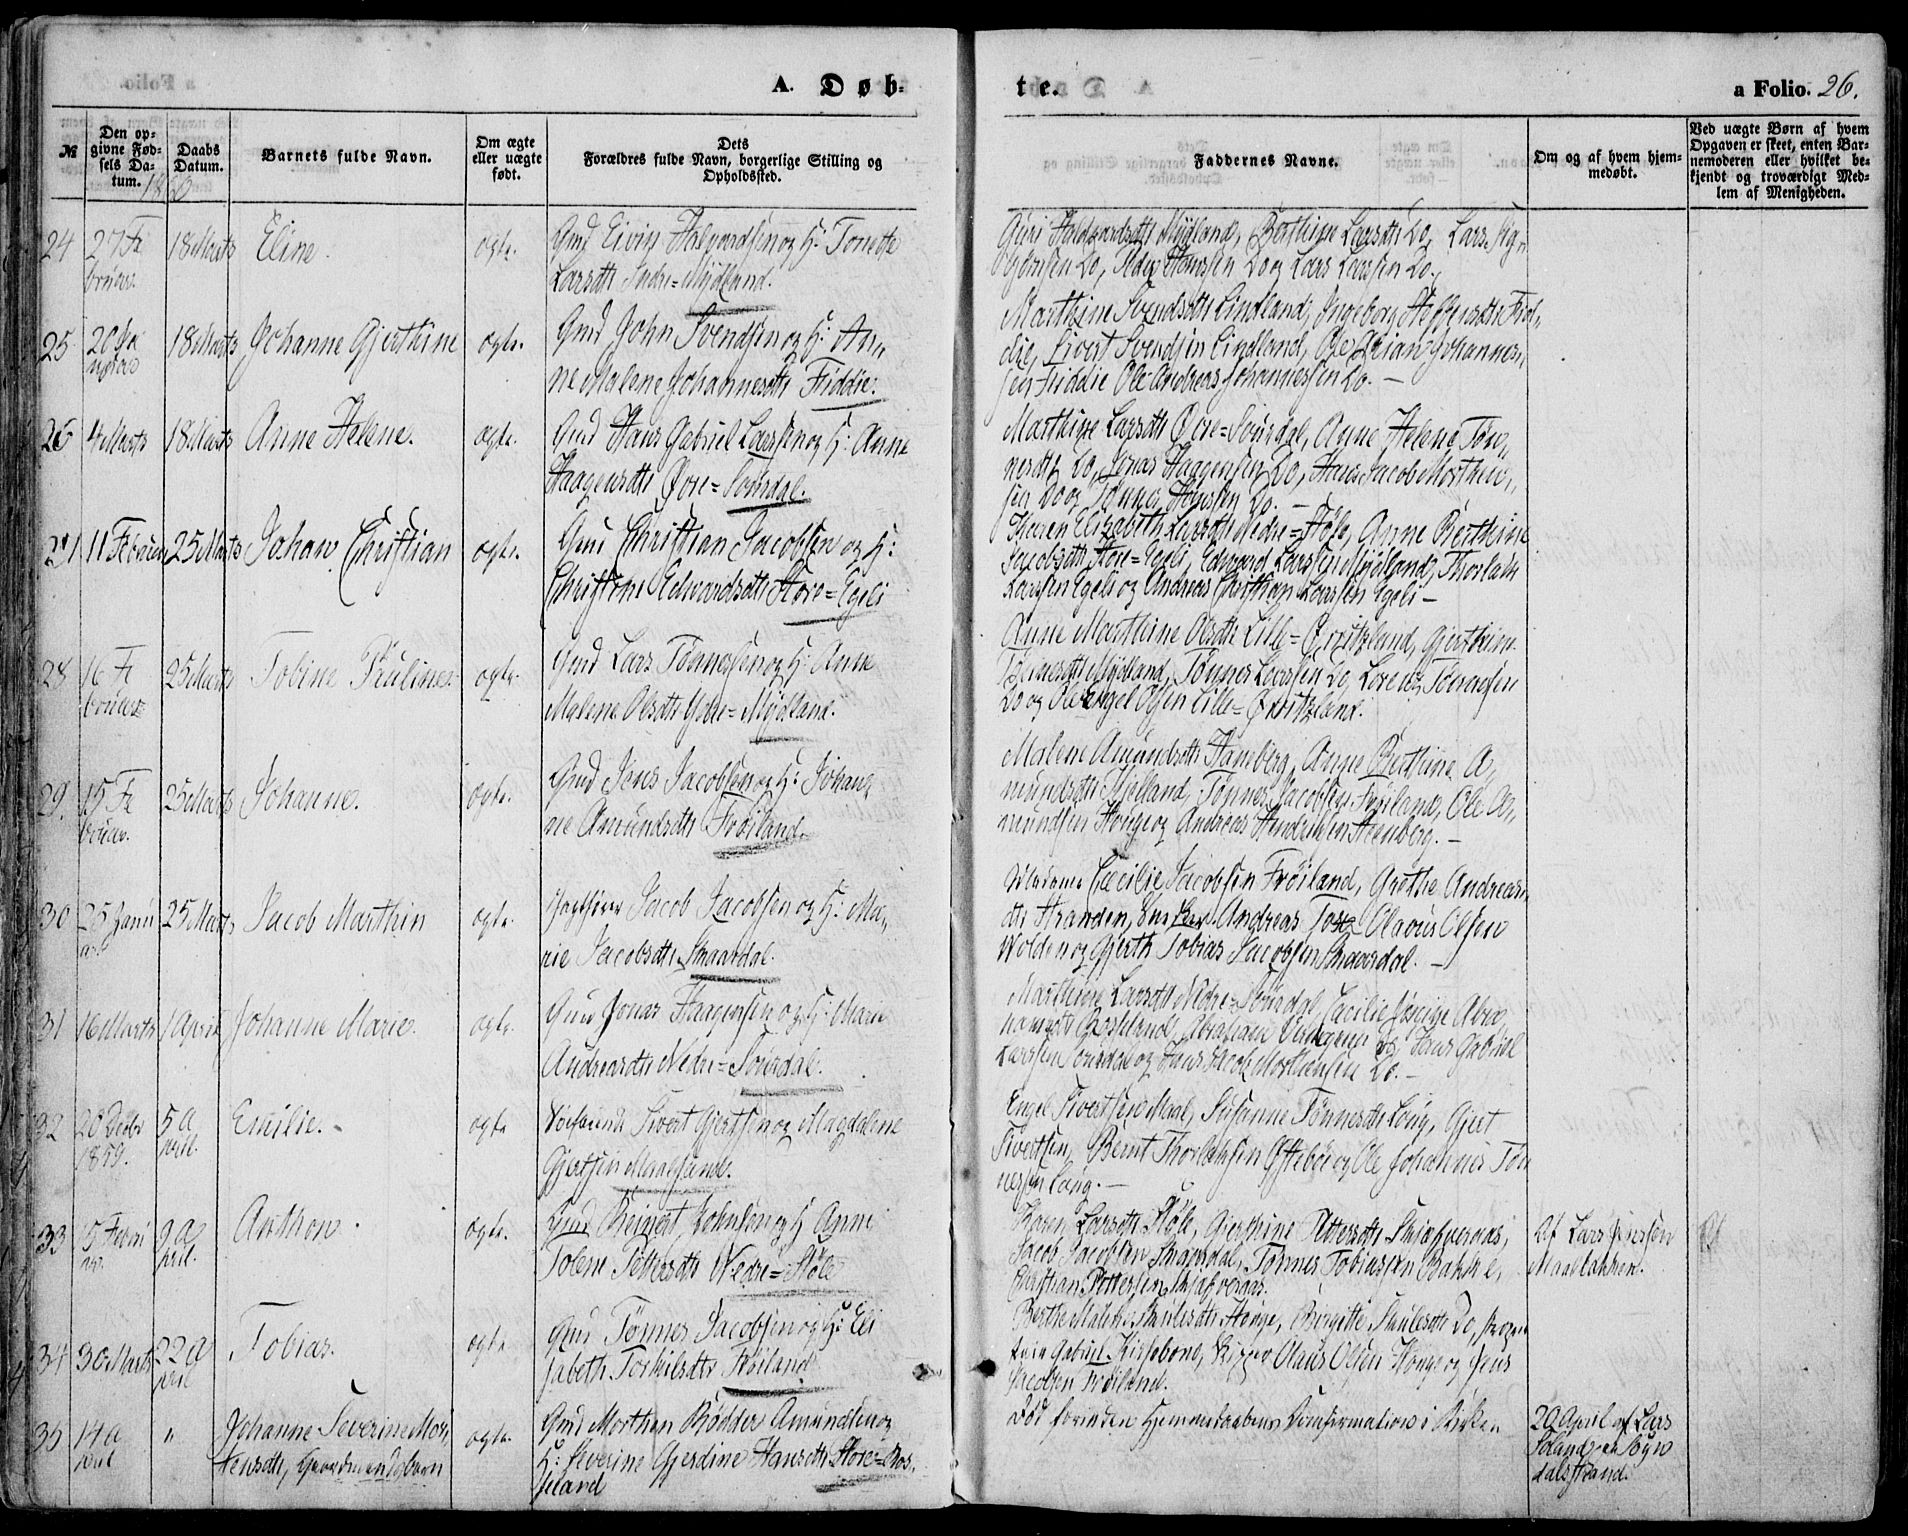 A. Døb-
te.
a Folio. 26.
№
Den op-
givne Fød-
sels Da-
tum. 1860
Daabs
Datum.
Barnets fulde Navn.
Om ægte
eller uægte
født.
Dets
Forældres fulde Navn, borgerlige Stilling og
Opholdssted.
Faddernes Navne.
Om og af hvem hjem-
medøbt.
Ved uægte Børn af hvem
Opgaven er skeet, enten Bar-
nemoderen eller hvilket be-
kjendt og troværdigt Med-
lem af Menigheden.
24
27 Fe
bruar.
18 Marts
Eline.
ægte.
Gmd Eivin Halvardsen og H: Tonette
Larsdtr Indre=Mydland.
Guri Haldvardsdtr Mydland, Berthine Larsdtr Do, Lars
Do, Peder Hansen Do og Lars Larsen Do.
25
20 Ja
nuar
18 Marts
Johanne Gjerthine
ægte.
Gmd John Svendsen og H: An,
ne Malene Johannesdtr Friddie.
Marthine Svendsdtr Lindland, Ingeborg Steffensdtr Frid,
die, Sivert Svendsen Lindland, Ole Adrian Johannes,
sen Friddie Ole Andreas Johannessen Do. —
26
4 Marts
18 Marts
Anne Helene.
ægte.
Gmd Hans Gabriel Larssen og H: Anne
Haagensdtr Øvre=Sourdal.
Marthine Larsdtr Øvre=Sourdal, Anne Helene Tøn,
nesdtr Do, Jonas Haagensen Do, Hans Jacob Morthen,
sen Do og Tønnes Hanssen Do. —
27
11 Februar
25 Marts
Johan Christian
ægte.
Gmd Christian Jacobsen og H:
Christine Edwardsdtr Store=Egeli
Theren Elizabeth Larsdtr Nedre=Støle, Anne Berthine
Jacobsdtr Store=Egeli, Edvard Larssen Mydland, Thorlak
Larssen Egeli og Andreas Christian Larssen Egeli —
28
16 Fe
bruar
25 Marts
Tobine Pauline.
ægte.
Gmd Lars Tønnessen og H: Anne
Malene Olsdtr Ydre=Mydland.
Anne Marthine Olsdtr Lille=Øxritzland, Gjerthine
Tønnesdtr Mydland, Tønnes Larssen Do, Lorentz Tønnesen
Do og Ole Engel Olsen Lille=Øxritzland.
29.
15 Fe
bruar.
25 Marts
Johanne.
ægte.
Gmd Jens Jacobsen og H: Johan,
ne Amundsdtr Frøiland.
Malene Amundsdtr Stamberg, Anne Berthine A,
mundsdtr Mjelland, Tønnes Jacobsen Frøiland, Ole A,
mundsen Houge og Andreas Hendriksen Steenberg. —
30
25 Janu
ar.
25 Marts
Jacob Marthin
ægte.
Jagtfører Jacob Jacobsen og H: Ma,
rie Jacobsdtr Smaardal.
Madame Cæcilie Jacobsen Frøiland, Grethe Andreas,
dtr Stranden, Andreas Olavus Olsen
Wolden og Gjerth Tobias Jacobsen Smaardal. —
31
16 Marts
1 April
Johanne Marie.
ægte.
Gmd Jonas Haagensen og H: Marie
Andreasdtr Nedre=Sourdal.
Marthine Larsdtr Nedre=Sourdal, Cæcilie Josine Abra
hamsdtr Rosseland, Abraham og Hans Gabriel
Larssen Sourdal og Hans Jacob Morthensen Do. —
32
20 Decbr
1859.
5 A
pril.
Emilie.
ægte
Sivert Gjertsen og Magdalene
Gjertsen Maalsund.
Engel Sivertsen Maal, Susanne Tønnesdtr Loug, Gjert
Sivertsen, Bernt Thorlaksen Øftebøe og Ole Johannes Tøn
nessen Loug. —
33
5 Febru
ar.
9 A
pril.
Anthon.
ægte.
Gmd Reinert Johnsen og H: Anne
Tolene Pettersdtr Nedre=Støle
Karen Larsdtr Støle, Gjerthine Pettersdtr Skjafveraas,
Jacob Jacobsen Smaardal, Tønnes Tobiassen Bakke,
Christian Pettersen Skjafveraas.
Af Lars Jenssen
Maalbakken.
34
30 Marts
22 A
pril
Tobias.
ægte
Gmd Tønnes Jacobsen og H: Eli
sabeth Torkilsdtr Frøiland
Berthe Malene Paulsdtr Houge, Birgitte Paulsdtr Do,
Gabriel Kirkebone, Rigger Olaus Olsen Houge og Jens
Jacobsen Frøiland.
35
14 A
pril
"
Johanne Severine Mor,
tensdtr, Gaardmandsbarn
ægte.
Gmd Morthen Rødder Amundsen og
H: Severine Gjerdine Hansdtr Store=Ros,
seland
Død forinden Hjemmedaabens Confirmation i Kirken
20 April af Lars
Soland paa Sogn
dalsstrand.